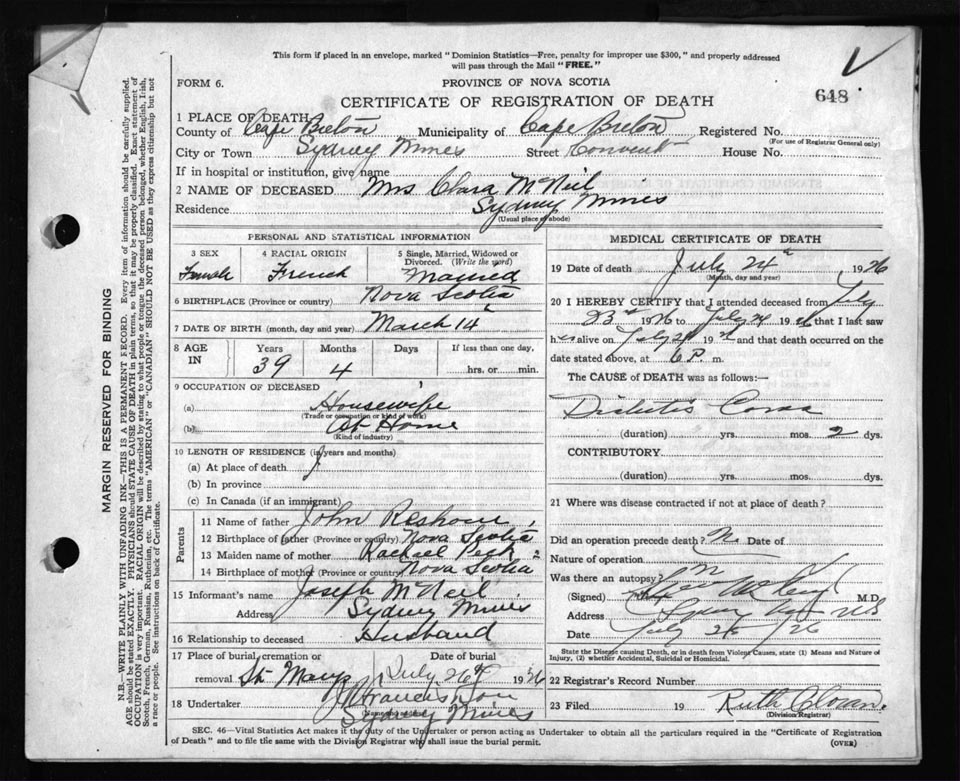 This form if placed in an envelope, marked "Dominion Statistics—Free, penalty for improper use $300," and properly addressed
will pass through the Mail "FREE."
FORM 6.
PROVINCE OF NOVA SCOTIA
648
CERTIFICATE OF REGISTRATION OF DEATH
1 PLACE OF DEATH
County of Cape Breton Municipality of Cape Breton Registered No.
(For use of Registrar General only)
City or Town Sydney Mines Street Convent House No.
If in hospital or institution, give name
2 NAME OF DECEASED Mrs Clara McNeil
Residence Sydney Mines
(Usual place of abode)
PERSONAL AND STATISTICAL INFORMATION
3 SEX Female
4 RACIAL ORIGIN French
5 Single, Married, Widowed or Divorced. (Write the word) Married
6 BIRTHPLACE (Province or country) Nova Scotia
7 DATE OF BIRTH (month, day and year) March 14
8 AGE IN Years 39 Months 4 Days If less than one day, hrs. or min.
9 OCCUPATION OF DECEASED
(a) Housewife
(Trade or occupation or kind of work)
(b) At Home
(Kind of industry)
10 LENGTH OF RESIDENCE (in years and months)
(a) At place of death
(b) In province
(c) In Canada (if an immigrant)
Parents
11 Name of father John
12 Birthplace of father (Province or country) Nova Scotia
13 Maiden name of mother Rachael
14 Birthplace of mother (Province or country) Nova Scotia
15 Informant's name Joseph McNeil
Address Sydney Mines
16 Relationship to deceased Husband
17 Place of burial, cremation or removal St Marys
Date of burial July 26 1926
18 Undertaker
Sydney Mines
MEDICAL CERTIFICATE OF DEATH
19 Date of death July 24th, 1926
(Month, day and year)
20 I HEREBY CERTIFY that I attended deceased from July
23rd 1926 to July 24 1926 that I last saw
h alive on July 24 1926 and that death occurred on the
date stated above, at 6 P. m.
The CAUSE of DEATH was as follows:—
Diabetis Coma
(duration) yrs. mos. 2 dys.
CONTRIBUTORY
(duration) yrs. mos. dys.
21 Where was disease contracted if not at place of death?
Did an operation precede death? No Date of
Nature of operation
Was there an autopsy?
(Signed) M.D.
Address
Date July 26 /26
State the Disease causing Death, or in death from Violent Causes, state (1) Means and Nature of
Injury, (2) whether Accidental, Suicidal or Homicidal.
22 Registrar's Record Number
23 Filed 19 Ruth
(Division Registrar)
SEC. 46—Vital Statistics Act makes it the duty of the Undertaker or person acting as Undertaker to obtain all the particulars required in the "Certificate of Registration
of Death" and to file the same with the Division Registrar who shall issue the burial permit.
(OVER)
MARGIN RESERVED FOR BINDING
N.B.—WRITE PLAINLY WITH UNFADING INK—THIS IS A PERMANENT RECORD. Every item of information should be carefully supplied.
AGE should be stated EXACTLY. PHYSICIANS should STATE CAUSE OF DEATH in plain terms, so that it may be properly classified. Exact statement of
OCCUPATION is very important. RACIAL ORIGIN will be described by stating to what people or tongue the deceased person belonged, whether English, Irish,
Scotch, French, German, Russian, Ruthenian, etc. The terms "AMERICAN" or "CANADIAN" SHOULD NOT BE USED as they express citizenship but not
a race or people. See instructions on back of Certificate.